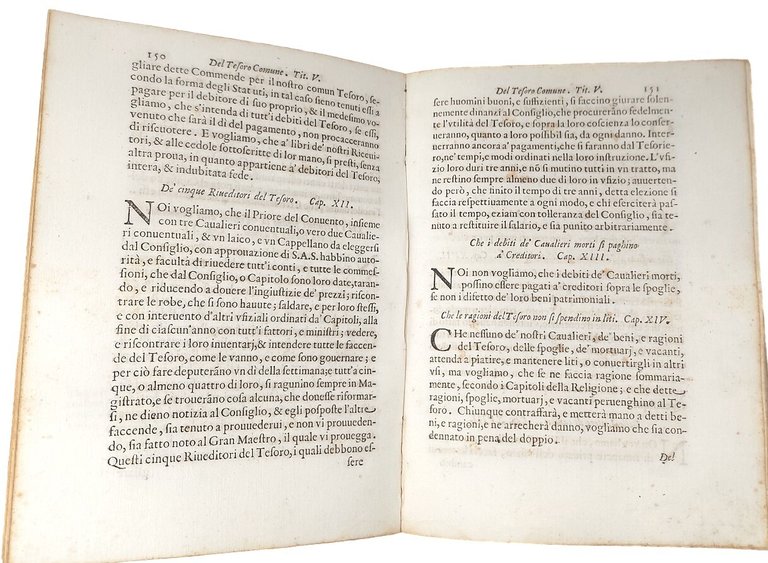 150
Del Tesoro Comune. Tit. V.
gliare dette Commende per il nostro comun Tesoro, se-
condo la forma degli Statuti, in tal caso sieno tenuti essi a
pagare per il debitore di suo proprio, & il medesimo vo-
gliamo, che s'intenda di tutt'i debiti del Tesoro, se essi,
venuto che sarà il dì del pagamento, non procacceranno
di riscuotere. E vogliamo, che a' libri de' nostri Riceui-
tori, & alle cedole sottoscritte di lor mano, si presti, senza
altra proua, in quanto appartiene a' debitori del Tesoro,
intera, & indubitata fede.
De' cinque Riueditori del Tesoro. Cap. XII.
NOi vogliamo, che il Priore del Conuento, insieme
con tre Caualieri conuentuali, o vero due Caualie-
ri conuentuali, & vn laico, e vn Cappellano da eleggersi
dal Consiglio, con approuazione di S.A.S. habbino auto-
rità, e facultà di riuedere tutt'i conti, e tutte le commes-
sioni, che dal Consiglio, o Capitolo sono loro date, taran-
do, e riducendo a douere l'ingiustizie de' prezzi; riscon-
trare le robe, che si sono hauute; saldare, e per lor stessi,
e con interuento d'altri vfiziali ordinati da' Capitoli, alla
fine di ciascun'anno con tutt'i fattori, e ministri; vedere,
e riscontrare i loro inuentarj, & intendere tutte le faccen-
de del Tesoro, come le vanno, e come sono gouernare; e
per ciò fare deputeranno vn dì della settimana; e tutt'a cin-
que, o almeno quattro di loro, si ragunino sempre in Ma-
gistrato, e se troueranno cosa alcuna, che douesse riformar-
si, ne dieno notizia al Consiglio, & egli posposte l'altre
faccende, sia tenuto a prouuederui, e non vi prouueden-
do, sia fatto noto al Gran Maestro, il quale vi prouegga.
Questi cinque Riueditori del Tesoro, i quali debbono es-
sere
Del Tesoro Comune. Tit. V.
151
sere huomini buoni, e suffizienti, si faccino giurare solen-
nemente dinanzi al Consiglio, che procureranno fedelmen-
te l'vtilità del Tesoro, e sopra la loro coscienza lo conser-
ueranno, quanto a loro possibil sia, da ogni danno. Inter-
uerranno ancora a' pagamenti, che si faranno dal Tesorie-
ro, ne' tempi, e modi ordinati nella loro instruzione. L'vfi-
zio loro duri tre anni, e nō si mutino tutti in vn tratto, ma
ne restino sempre almeno due di loro in vfizio; auuerten-
do però, che finito il tempo di tre anni, detta elezione si
faccia respettiuamente a ogni modo, e chi eserciterà pas-
sato il tempo, eziam con tolleranza del Consiglio, sia te-
nuto a restituire il salario, e sia punito arbitrariamente.
Che i debiti de' Caualieri morti si paghino
a' Creditori. Cap. XIII.
NOi non vogliamo, che i debiti de' Caualieri morti,
possino essere pagati a' creditori sopra le spoglie,
se non i difetto de' loro beni patrimoniali.
Che le ragioni del Tesoro non si spendino in liti. Cap. XIV.
CHe nessuno de' nostri Caualieri, de' beni, e ragioni
del Tesoro, delle spoglie, de' mortuarj, e vacanti,
attenda a piatire, e mantenere liti, o conuertirgli in altri
vsi, ma vogliamo, che se ne faccia ragione sommaria-
mente, secondo i Capitoli della Religione; e che dette
ragioni, spoglie, mortuarj, e vacanti peruenghino al Te-
soro. Chiunque contraffarà, e metterà mano a detti be-
ni, e ragioni, e ne arrecherà danno, vogliamo che sia con-
dennato in pena del doppio.
Del